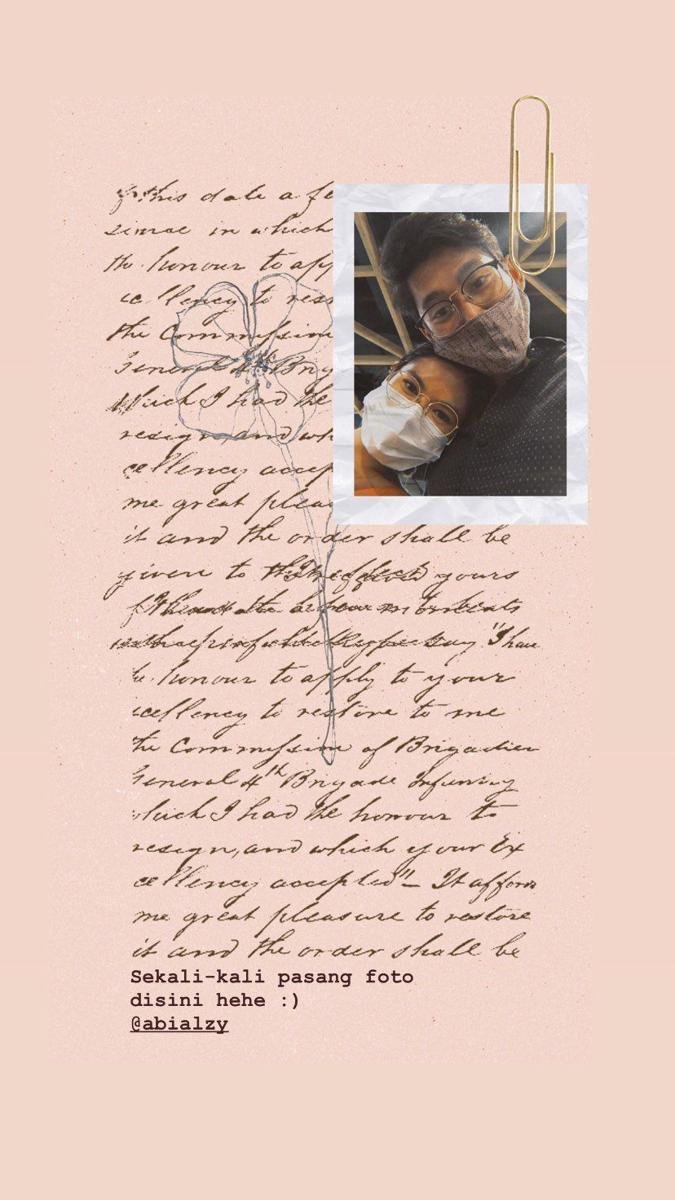 this date a fe
in which
the honour to app
cellency to res
the Commission
General 4th Brig
Which I had the
resign, and wh
cellency accep
me great pleas
it and the order shall be
given to yours
say "I have
honour to apply to your
cellency to restore to me
the Commission of Brigadier
General 4th Brigade Infantry
which I had the honour to
resign, and which your Ex
cellency accepted" — It affords
me great pleasure to restore
it and the order shall be
Sekali-kali pasang foto
disini hehe :)
@abialzy